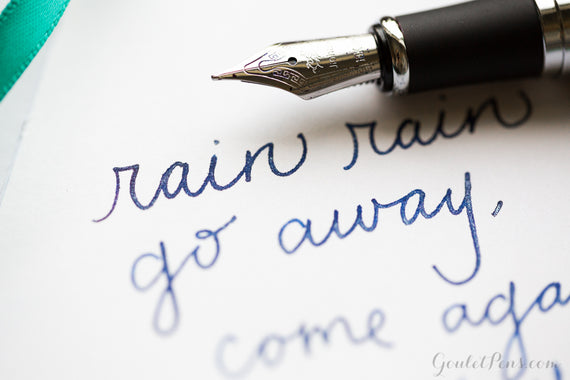 rain rain
go away,
come aga
GouletPens.com